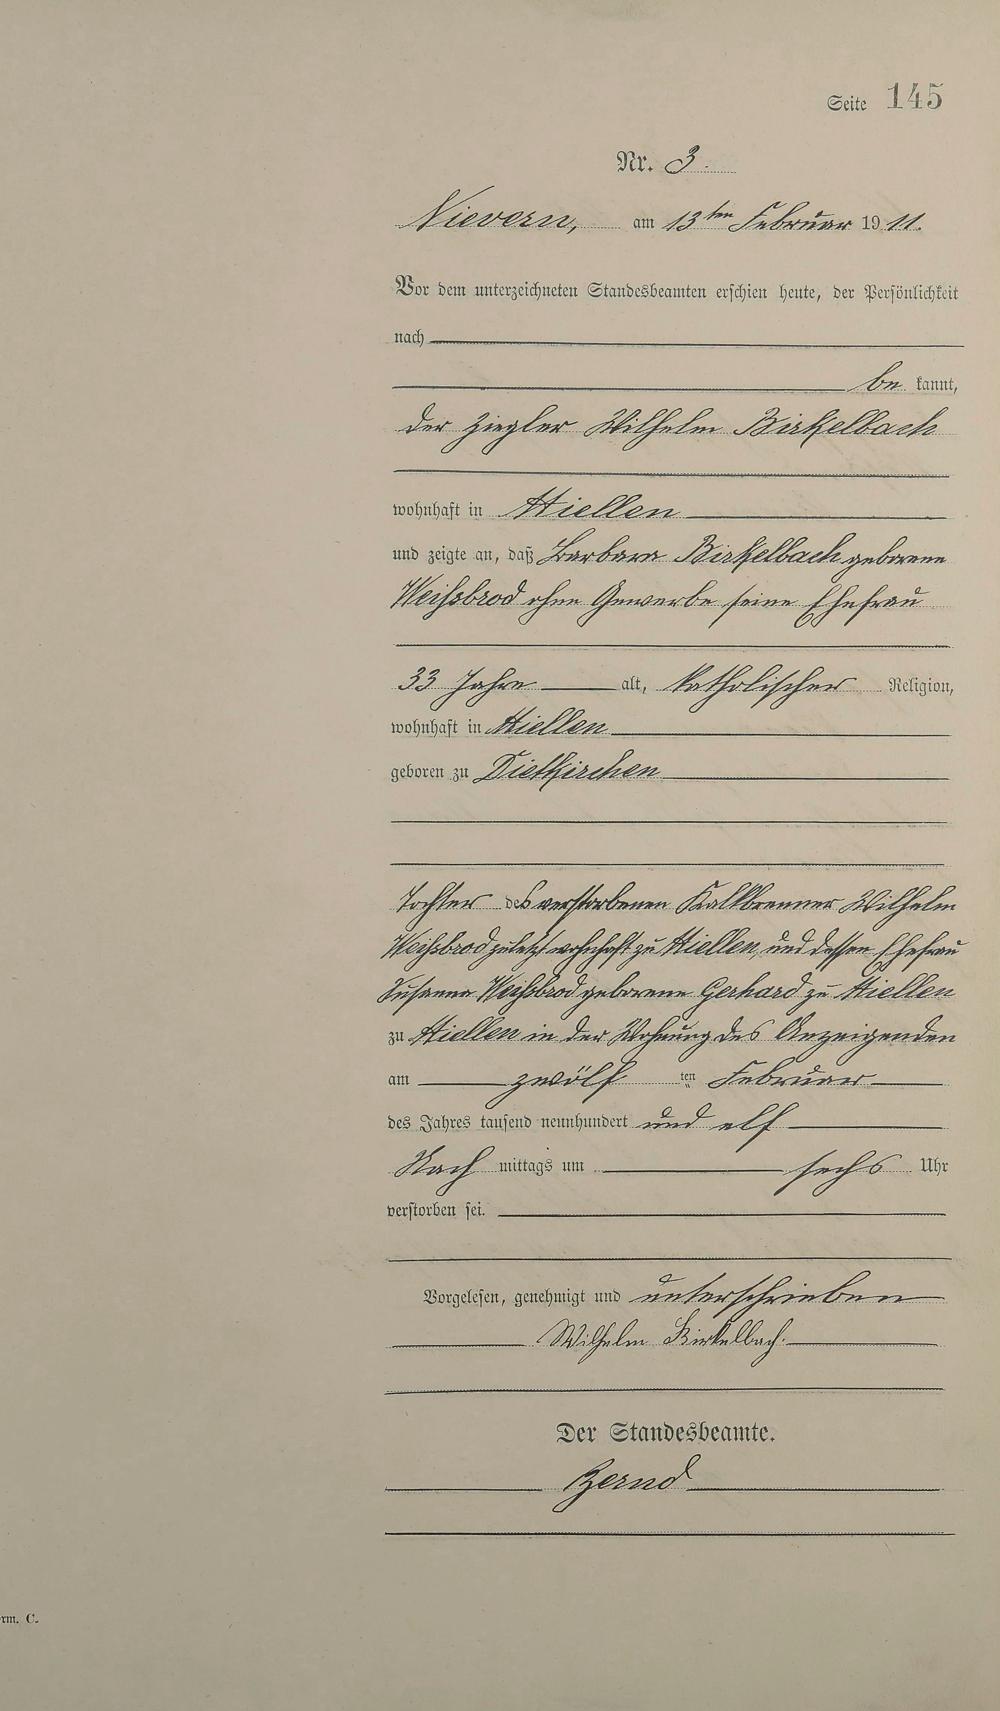 Seite 145
Nr. 3.
Nievern, am 13ten Februar 1911.
Vor dem unterzeichneten Standesbeamten erschien heute, der Persönlichkeit
nach
be kannt,
der Ziegler Wilhelm Birkelbach
wohnhaft in Miellen
und zeigte an, daß Barbara Birkelbach geborene
Weißbrod ohne Gewerbe seine Ehefrau
33 Jahre alt, katholischer Religion,
wohnhaft in Miellen
geboren zu Dietkirchen
Tochter des verstorbenen Kalkbrenner Wilhelm
Weißbrod zuletzt wohnhaft zu Miellen, und dessen Ehefrau
Susanna Weißbrod geborene Gerhard zu Miellen
zu Miellen in der Wohnung des Anzeigenden
am zwölf ten Februar
des Jahres tausend neunhundert und elf
Nach mittags um sechs Uhr
verstorben sei.
Vorgelesen, genehmigt und unterschrieben
Wilhelm Birkelbach.
Der Standesbeamte.
rm. C.